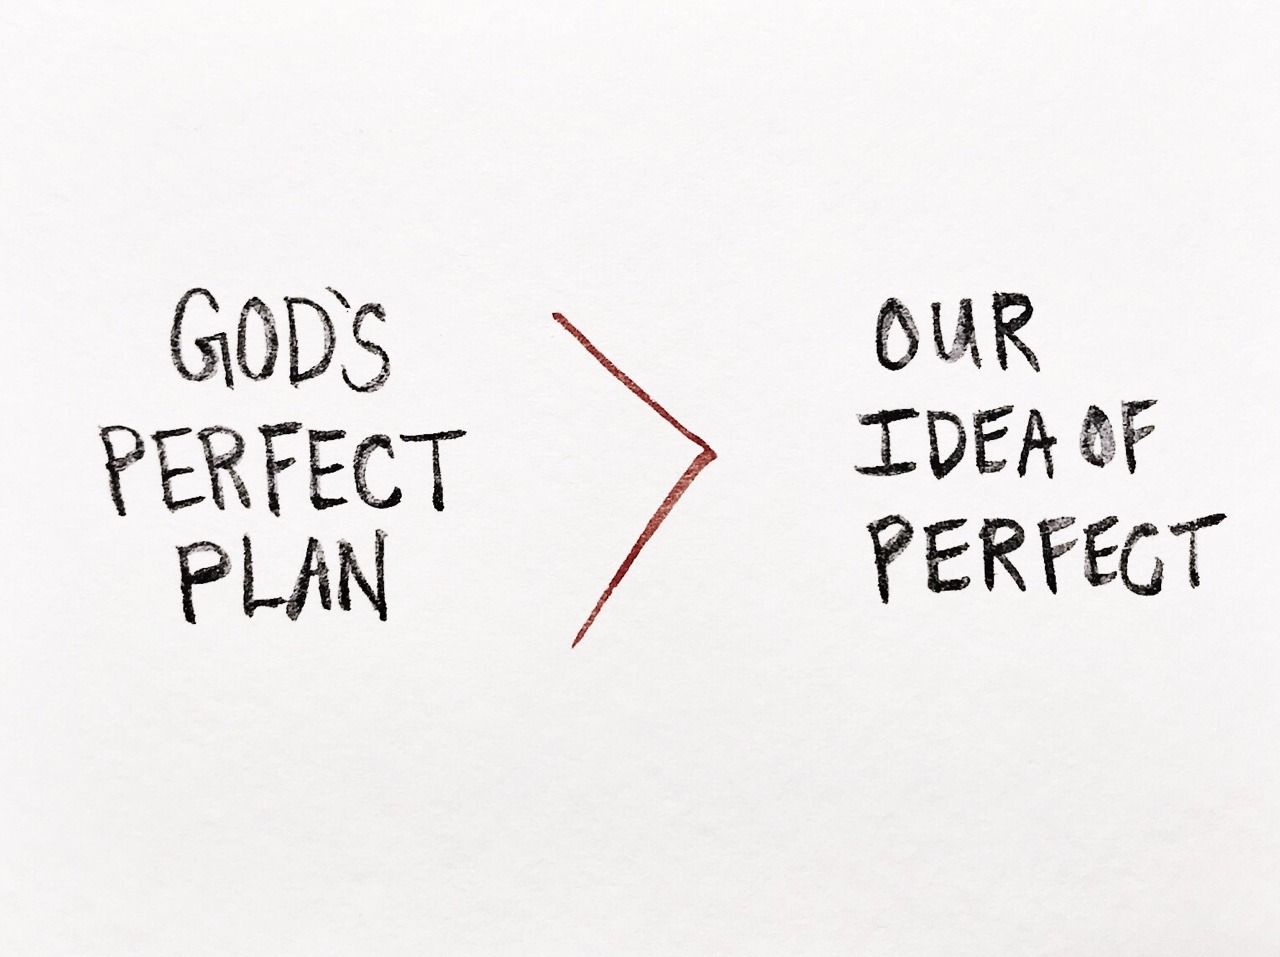 GOD'S
PERFECT
PLAN
>
OUR
IDEA OF
PERFECT